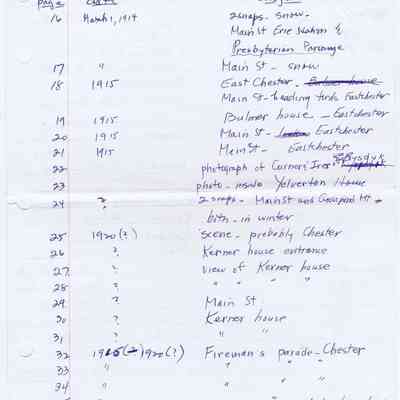 page
16 March 1, 1914 2 snaps - snow -
Main St Erie Station &
Presbyterian Parsonage
17 " Main St - snow
18 1915 East Chester - Bulmer house
Main St - heading twds Eastchester
19 1915 Bulmer house - Eastchester
20 1915 Main St - Eastchester
21 1915 Main St - Eastchester
22 photograph of
23 photo - inside Yelverton House
24 ? 2 snaps - Main St and Goosepond Mt -
both - in winter
25 1920 (?) Scene - probably Chester
26 ? Kerner house entrance
27 ? view of Kerner house
28 ? " " " "
29 ? Main St
30 ? Kerner house
31 ? " "
32 1915 (?) 1920 (?) Fireman's parade - Chester
33 " " "
34 " " "